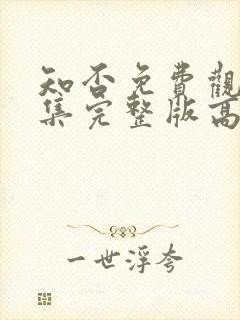 知否免費觀
集完整版高
一世浮夸